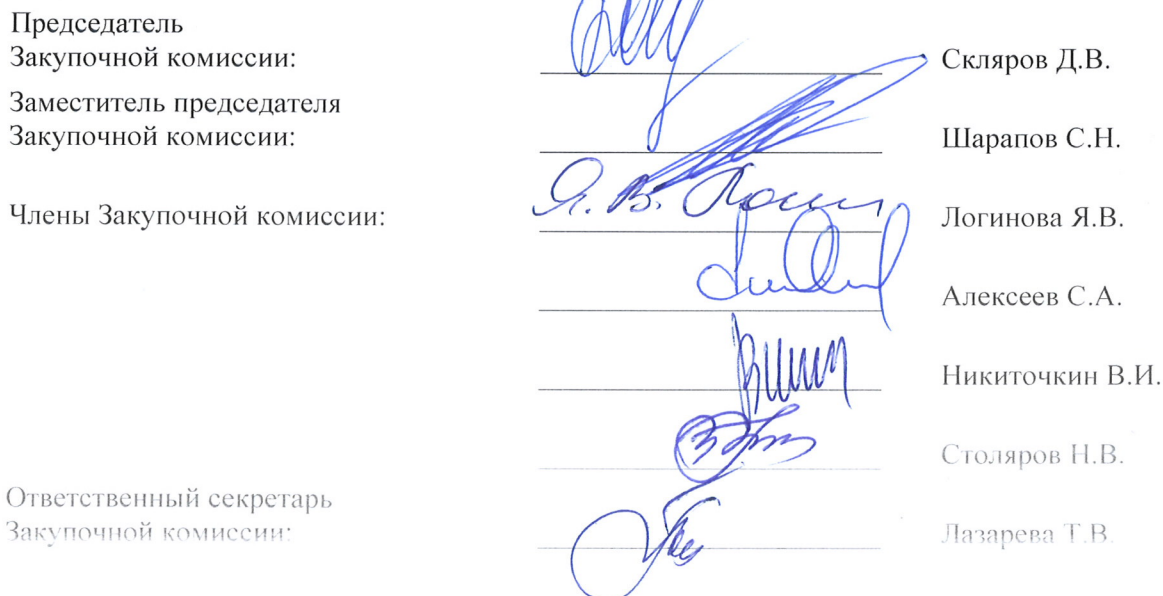 Председатель
Закупочной комиссии: Скляров Д.В.
Заместитель председателя
Закупочной комиссии: Шарапов С.Н.
Я.В. Логинова
Члены Закупочной комиссии: Логинова Я.В.
Алексеев С.А.
Никиточкин В.И.
Столяров Н.В.
Ответственный секретарь
Закупочной комиссии: Лазарева Т.В.